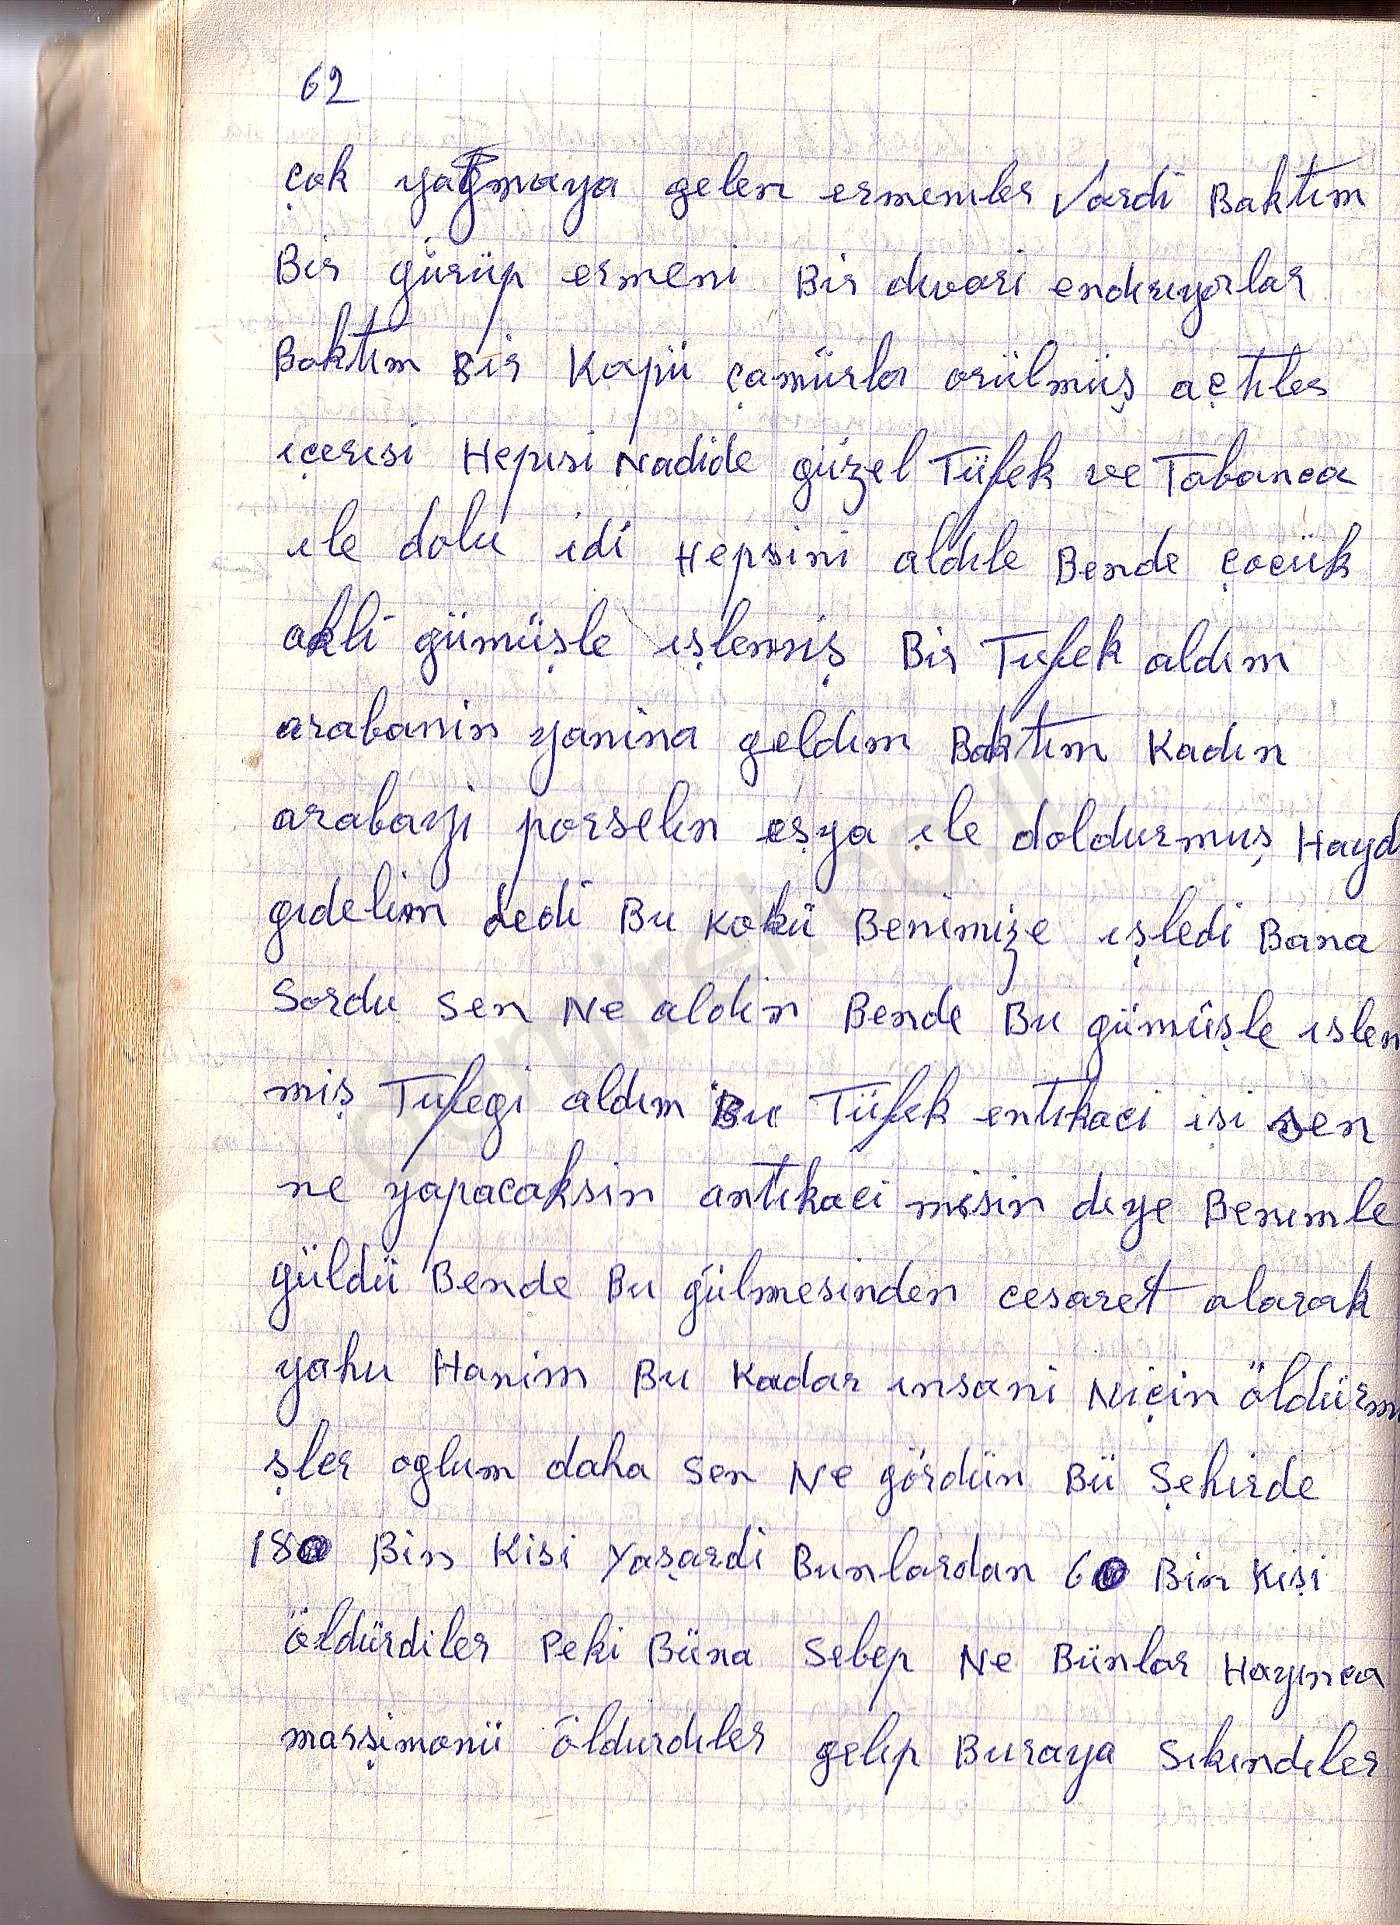 62
çok yağmaya gelen ermeniler Vardi Baktım
Bir gürüp ermeni Bir duvari endırıyorlar
Baktım Bir Kapü çamürla örülmüş açtıler
ıçerısi Hepısi Nadide güzel Tüfek ve Tabanca
ıle dolu idi Hepsini aldıle Bende çocük
akli gümüşle ışlenmiş Bir Tufek aldım
arabanin yanina geldım Baktım Kadın
arabayi porselın eşya ıle doldurmuş Hayd
gıdelim dedi Bu Kokü Benimize ışledi Bana
Sordu Sen Ne aldın Bende Bu gümüşle ıslen
miş Tufegi aldım Bu Tüfek entıkaci işi sen
ne yapacaksin antıkaci misin dıye Benımle
güldü Bende Bu gülmesınden cesaret alarak
yahu Hanim Bu Kadar ınsani Niçin öldürm
şler oglum daha Sen Ne gördün Bü Şehirde
180 Bin Kisi Yaşardi Bunlardan 60 Bin Kişi
öldürdiler Peki Büna Sebep Ne Bünlar Hayınca
marşimonü öldurdıler gelıp Buraya Sıkındıler